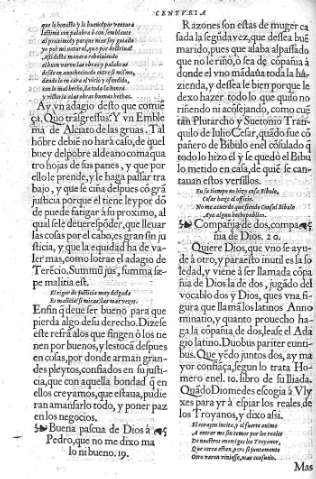 CENTVRIA
que lo honesto y lo bueno
por mi natural, que por
muchas vezes rebolviendo
Ay vn adagio desto que comiẽ
ça. Quo trasgressus: Y vn Emble
ma de Alciato de las gruas. Tal
hõbre debiẽ no hará caso, de quel
buey del pobre aldeano coma qua
tro hojas de sus panes, y que por
ello le prende, y le haga passar tra
bajo, y que le ciña despues cõ grã
justicia porque el tiene ley por dõ
de puede fatigar a su proximo, al
qual se le deue respõder, que lleuar
las cosas por el cabo, es gran sin ju
sticia, y que la equidad ha de va-
ler mas, como lo trae el adagio de
Terẽcio. Summũ jus, summa sæ-
pe malitia est.
El rigor de justicia muy delgada
Es malicia si miras, las mas vezes.
Enfin q̃ deue ser bueno para que
pierda algo de su derecho. Dize se
este refrã a los que fingen ó los tie
nen por buenos, y les toca despues
en cosas, por donde arman gran-
des pleytos, confiados en su justi-
cia, que con aquella bondad q̃ en
ellos creyamos, que estaua, pudie
ran amansarlo todo, y poner paz
en los negocios.
Buena pascua de Dios à
Pedro, que no me dixo ma
lo ni bueno. 19.
Razones son estas de muger ca
sada la segũda vez, que dessea buẽ
marido, pues que alaba al passado
que no le riño, ó sea de cõpañia à
donde el vno mãdaua toda la hà
zienda, y dessea le bien porque le
dexo hazer todo lo que quiso no
riñendo ni aconsejando, como cuẽ
tan Plutarcho y Suetonio Tran-
quilo de Iulio Cesar, quãdo fue có
pañero de Bibulo en el cõsulado q̃
todo lo hizo él y se quedò el Bibu
lo metido en casa, de que se can-
tauan estos versillos.
En tu tiempo no hizo cosa Bibulo,
Cesar haze el officio.
No me acuerdo que siendo Consul Bibulo
Aya algun hecho publico.
Compañia de dos, compa
ñia de Dios. 20.
Quiere Dios, que vno se ayu-
de à otro, y para esto inutil es la so
ledad, y viene à ser llamada cõpa
ñia de Dios la de dos, jugãdo del
vocablo dos y Dios, que es vna fi-
gura que llamã los latinos. Anno
minatio, y quanto prouecho ha-
ga la cõpañia de dos, lease el Ada
gio latino. Duobus pariter eunti-
bus. Que yẽdo juntos dos, ay ma
yor confiãça, segun lo trata Ho-
mero enel. 10. libro de su Iliada.
Quãdo Diomedes escogia à Vly
xes para yr à espiar reales de
los Troyanos, y dixo assi.
El coraçon incita, y al fuerte animo
A entrar me sin temor por los reales
De nuestros enemigos los Troyanos,
Que cerca estan, pero si juntamente
Otro varon viniesse, mas consuelo,
Mas